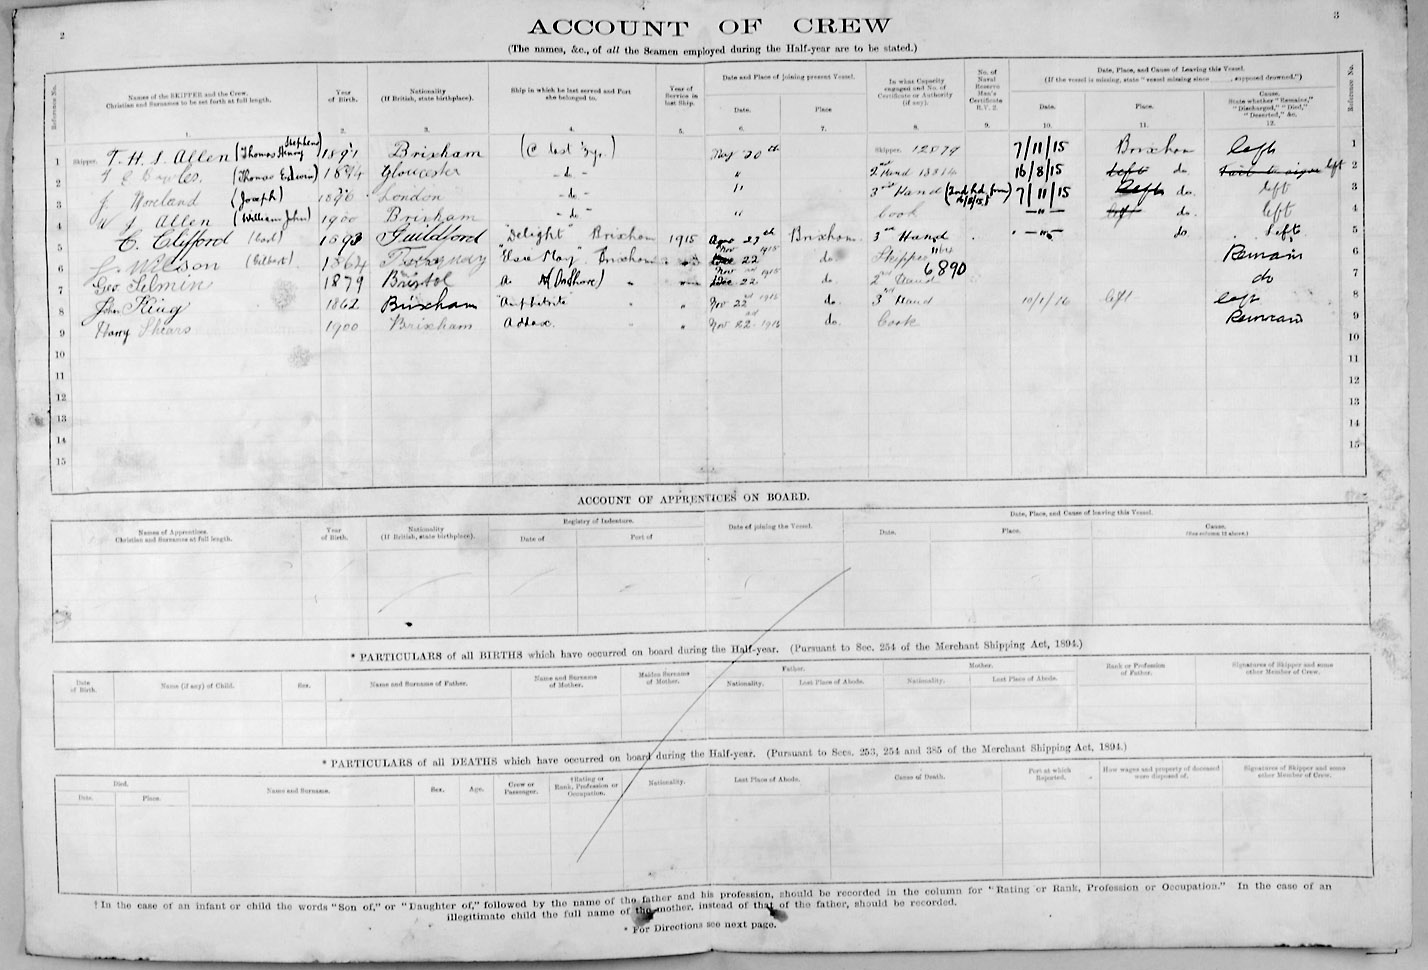 2
3
ACCOUNT OF CREW
(The names, &c., of all the Seamen employed during the Half-year are to be stated.)
Reference No. Names of the SKIPPER and the Crew. Christian and Surnames to be set forth at full length. Year of Birth. Nationality (If British, state birthplace). Ship in which he last served and Port she belonged to. Year of Service in last Ship. Date and Place of joining present Vessel. In what Capacity engaged and No. of Certificate or Authority (if any). No. of Naval Reserve Man's Certificate R.V. 2. Date, Place, and Cause of Leaving this Vessel. (If the vessel is missing, state "vessel missing since supposed drowned.") Reference No.
Date. Place Date. Place. Cause. State whether "Remains," "Discharged," "Died," "Deserted," &c.
1. 2. 3. 4. 5. 6. 7. 8. 9. 10. 11. 12.
1 Skipper. T. H. S. Allen (Thomas Henry Stephens) 1891 Brixham (C last ½yr.) May 20th Skipper. 12879 7/11/15 Brixham left 1
2 (Thomas) Gloucester - do - " 2nd Hand 16/8/15 left do. left 2
3 J. Moreland (Joseph) 1896 London - do - " 3rd Hand (2nd hd. from 16/8/15) 7/11/15 left do. left 3
4 W J Allen (William John) 1900 Brixham - do - " Cook -"- left do. left 4
5 C. Clifford (Carl) 1893 Guildford "Delight" Brixham 1915 27th Brixham 3rd Hand -"- do left 5
6 Wilson (Gilbert) 1864 Torquay "Elsie May" Brixham " Nov 22 1915 do. Skipper Remain 6
7 Geo Selmin 1879 Bristol " Nov 22nd 1915 do. 2nd Hand 6890 do 7
8 John King 1862 Brixham " Nov 22nd 1915 do. 3rd Hand 10/1/16 left left 8
9 Harry Shears 1900 Brixham " " Nov 22nd 1915 do. Cook Remain 9
10 10
11 11
12 12
13 13
14 14
15 15
ACCOUNT OF APPRENTICES ON BOARD.
Names of Apprentices. Christian and Surnames at full length. Year of Birth. Nationality (If British, state birthplace). Registry of Indenture. Date of joining the Vessel. Date, Place, and Cause of leaving this Vessel.
Date of Port of Date. Place. Cause. (See column 12 above.)
* PARTICULARS of all BIRTHS which have occurred on board during the Half-year. (Pursuant to Sec. 254 of the Merchant Shipping Act, 1894.)
Date of Birth. Name (if any) of Child. Sex. Name and Surname of Father. Name and Surname of Mother. Maiden Surname of Mother. Father. Mother. Rank or Profession of Father. Signatures of Skipper and some other Member of Crew.
Nationality. Last Place of Abode. Nationality. Last Place of Abode.
* PARTICULARS of all DEATHS which have occurred on board during the Half-year. (Pursuant to Secs. 253, 254 and 385 of the Merchant Shipping Act, 1894.)
Died. Name and Surname. Sex. Age. Crew or Passenger. †Rating or Rank, Profession or Occupation. Nationality. Last Place of Abode. Cause of Death. Port at which Reported. How wages and property of deceased were disposed of. Signatures of Skipper and some other Member of Crew.
Date. Place.
† In the case of an infant or child the words "Son of," or "Daughter of," followed by the name of the father and his profession, should be recorded in the column for "Rating or Rank, Profession or Occupation." In the case of an
illegitimate child the full name of the mother, instead of that of the father, should be recorded.
* For Directions see next page.